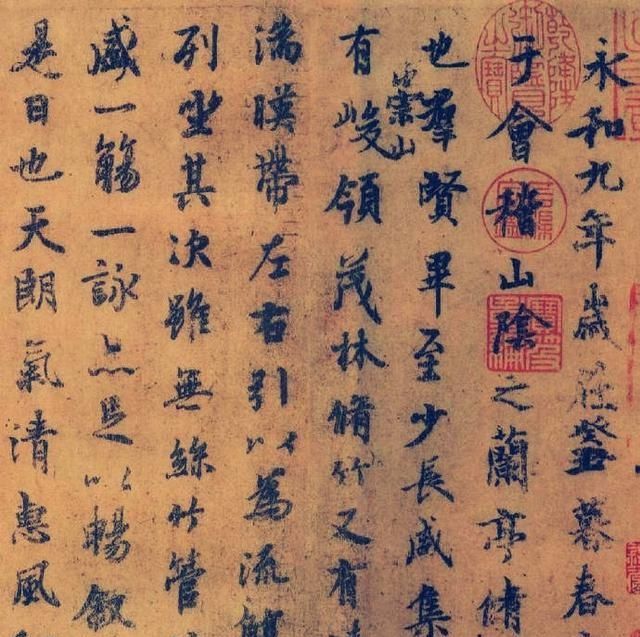 永和九年歲在癸丑暮春
于會稽山陰之蘭亭脩
也羣賢畢至少長咸集
有崇山峻領茂林脩竹又有
湍暎帶左右引以為流觴
列坐其次雖無絲竹管
盛一觴一詠亦足以暢敘
是日也天朗氣清惠風